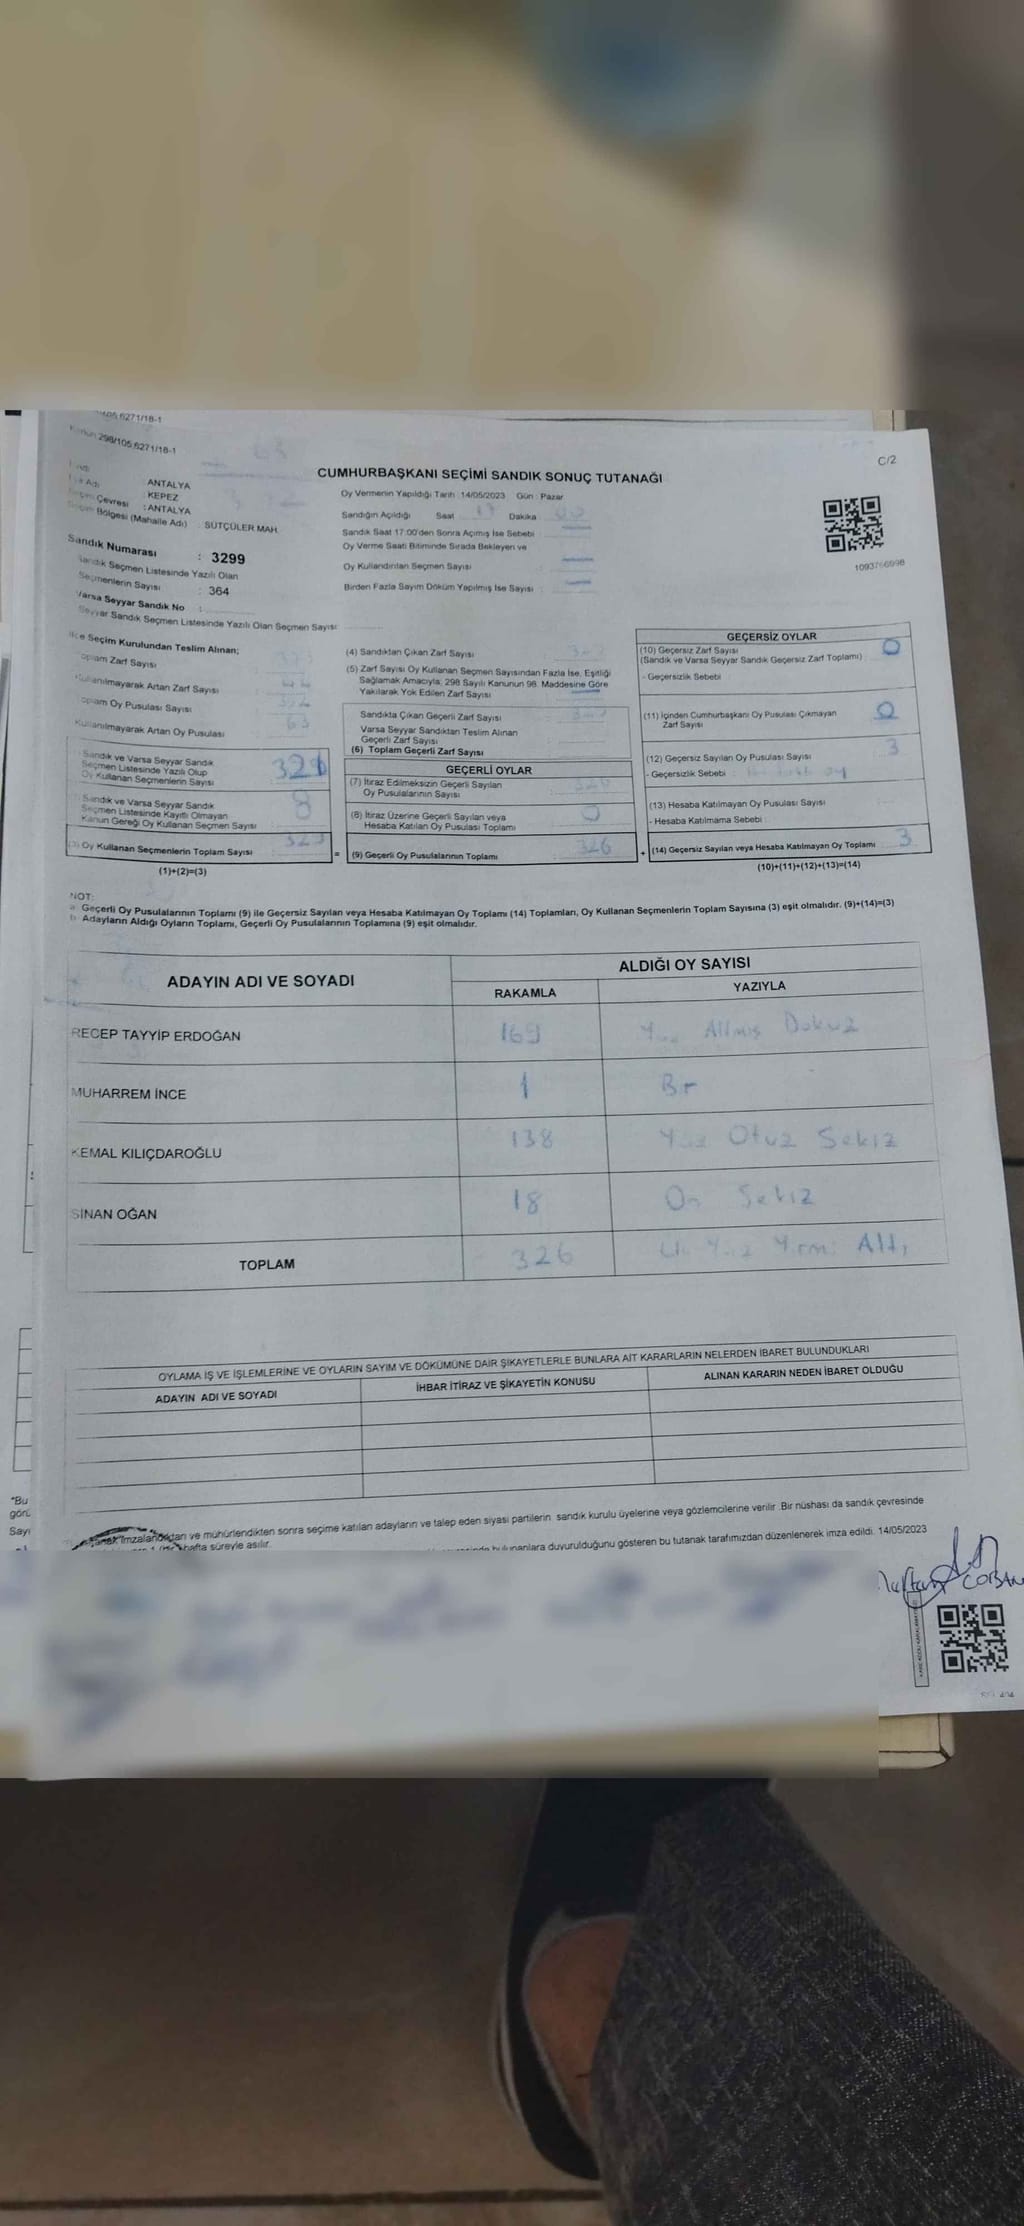 298/105,6271/18-1
C/2
CUMHURBAŞKANI SEÇİMİ SANDIK SONUÇ TUTANAĞI
: ANTALYA
: KEPEZ
Çevresi : ANTALYA
Bölgesi (Mahalle Adı) : SÜTÇÜLER MAH.
Oy Vermenin Yapıldığı Tarih :14/05/2023 Gün : Pazar
Sandığın Açıldığı Saat 17 Dakika 00
Sandık Saat 17:00'den Sonra Açımış İse Sebebi
Oy Verme Saati Bitiminde Sırada Bekleyen ve
Oy Kullandırılan Seçmen Sayısı
Birden Fazla Sayım Döküm Yapılmış İse Sayısı
1093766998
Sandık Numarası : 3299
Sandık Seçmen Listesinde Yazılı Olan
Seçmenlerin Sayısı : 364
Varsa Seyyar Sandık No :
Seyyar Sandık Seçmen Listesinde Yazılı Olan Seçmen Sayısı:
Seçim Kurulundan Teslim Alınan;
Toplam Zarf Sayısı
Kullanılmayarak Artan Zarf Sayısı
Toplam Oy Pusulası Sayısı
Kullanılmayarak Artan Oy Pusulası 63
Sandık ve Varsa Seyyar Sandık
Seçmen Listesinde Yazılı Olup
Oy Kullanan Seçmenlerin Sayısı
Sandık ve Varsa Seyyar Sandık
Seçmen Listesinde Kayıtlı Olmayan
Kanun Gereği Oy Kullanan Seçmen Sayısı 8
(3) Oy Kullanan Seçmenlerin Toplam Sayısı 329
(1)+(2)=(3)
(4) Sandıktan Çıkan Zarf Sayısı
(5) Zarf Sayısı Oy Kullanan Seçmen Sayısından Fazla İse, Eşitliği
Sağlamak Amacıyla, 298 Sayılı Kanunun 98. Maddesine Göre
Yakılarak Yok Edilen Zarf Sayısı
Sandıkta Çıkan Geçerli Zarf Sayısı
Varsa Seyyar Sandıktan Teslim Alınan
Geçerli Zarf Sayısı
(6) Toplam Geçerli Zarf Sayısı
GEÇERLİ OYLAR
(7) İtiraz Edilmeksizin Geçerli Sayılan
Oy Pusulalarının Sayısı 326
(8) İtiraz Üzerine Geçerli Sayılan veya
Hesaba Katılan Oy Pusulası Toplamı 0
= (9) Geçerli Oy Pusulalarının Toplamı 326
GEÇERSİZ OYLAR
(10) Geçersiz Zarf Sayısı 0
(Sandık ve Varsa Seyyar Sandık Geçersiz Zarf Toplamı)
- Geçersizlik Sebebi
(11) İçinden Cumhurbaşkanı Oy Pusulası Çıkmayan
Zarf Sayısı 0
(12) Geçersiz Sayılan Oy Pusulası Sayısı 3
- Geçersizlik Sebebi : oy
(13) Hesaba Katılmayan Oy Pusulası Sayısı
- Hesaba Katılmama Sebebi
+ (14) Geçersiz Sayılan veya Hesaba Katılmayan Oy Toplamı 3
(10)+(11)+(12)+(13)=(14)
NOT:
a Geçerli Oy Pusulalarının Toplamı (9) ile Geçersiz Sayılan veya Hesaba Katılmayan Oy Toplamı (14) Toplamları, Oy Kullanan Seçmenlerin Toplam Sayısına (3) eşit olmalıdır. (9)+(14)=(3)
b Adayların Aldığı Oyların Toplamı, Geçerli Oy Pusulalarının Toplamına (9) eşit olmalıdır.
ADAYIN ADI VE SOYADI
ALDIĞI OY SAYISI
RAKAMLA YAZIYLA
RECEP TAYYİP ERDOĞAN 169 Yüz Altmış Dokuz
MUHARREM İNCE 1 Bir
KEMAL KILIÇDAROĞLU 138 Yüz Otuz Sekiz
SİNAN OĞAN 18 On Sekiz
TOPLAM 326 Üç Yüz Yirmi Altı
OYLAMA İŞ VE İŞLEMLERİNE VE OYLARIN SAYIM VE DÖKÜMÜNE DAİR ŞİKAYETLERLE BUNLARA AİT KARARLARIN NELERDEN İBARET BULUNDUKLARI
ADAYIN ADI VE SOYADI İHBAR İTİRAZ VE ŞİKAYETİN KONUSU ALINAN KARARIN NEDEN İBARET OLDUĞU
imzalandıktan ve mühürlendikten sonra seçime katılan adayların ve talep eden siyasi partilerin sandık kurulu üyelerine veya gözlemcilerine verilir. Bir nüshası da sandık çevresinde
hafta süreyle asılır.
bulunanlara duyurulduğunu gösteren bu tutanak tarafımızdan düzenlenerek imza edildi. 14/05/2023
ÇOBAN